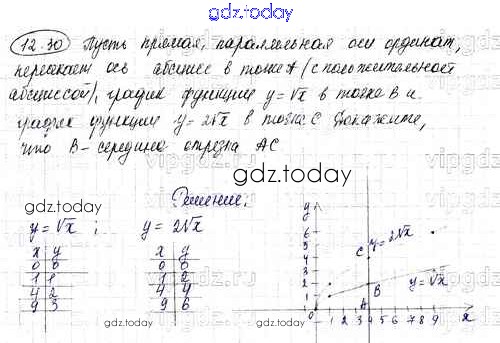 gdz.today
12.30 Пусть прямая, параллельная оси ординат,
пересекает ось абсцисс в точке A (с положительной
абсциссой), график функции y=√x в точке B и
график функции y=2√x в точке C. Докажите,
что B-середина отрезка AC
gdz.today
Решение:
y=√x ; y=2√x
x y x y
0 0 0 0
1 1 1 2
4 2 4 4
9 3 9 6
gdz.today
gdz.today
y
6
5
4
3
2
1
C
y=2√x
B
y=√x
A
1 2 3 4 5 6 7 8 9 x